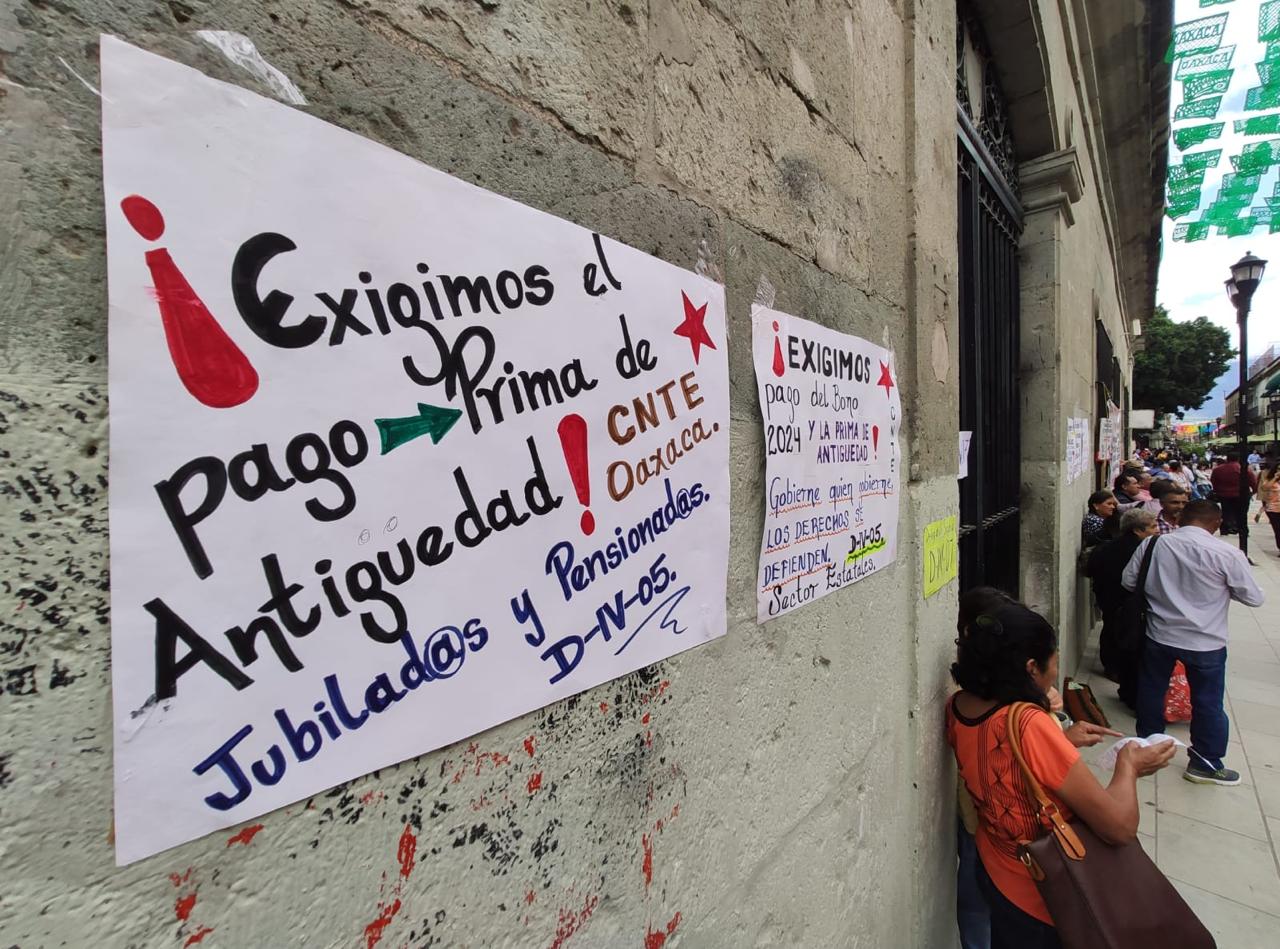 ¡Exigimos el
pago Prima de
Antigüedad!
CNTE
Oaxaca.
Jubilad@s y Pensionad@s.
D-IV-05.
¡EXIGIMOS
pago del Bono
2024 Y LA PRIMA DE
ANTIGUEDAD!
Gobierne quien gobierne,
LOS DERECHOS SE
DEFIENDEN. D-IV-05.
Sector Estatales.
CNTE
OAXACA
OAXACA